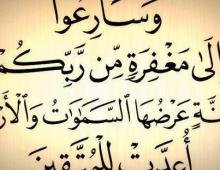 وَسَارِعُوا
لَىٰ مَغْفِرَةٍ مِّن رَّبِّكُمْ
نَّةٍ عَرْضُهَا ٱلسَّمَٰوَٰتُ وَٱلْأَر
أُعِدَّتْ لِلْمُتَّقِينَ